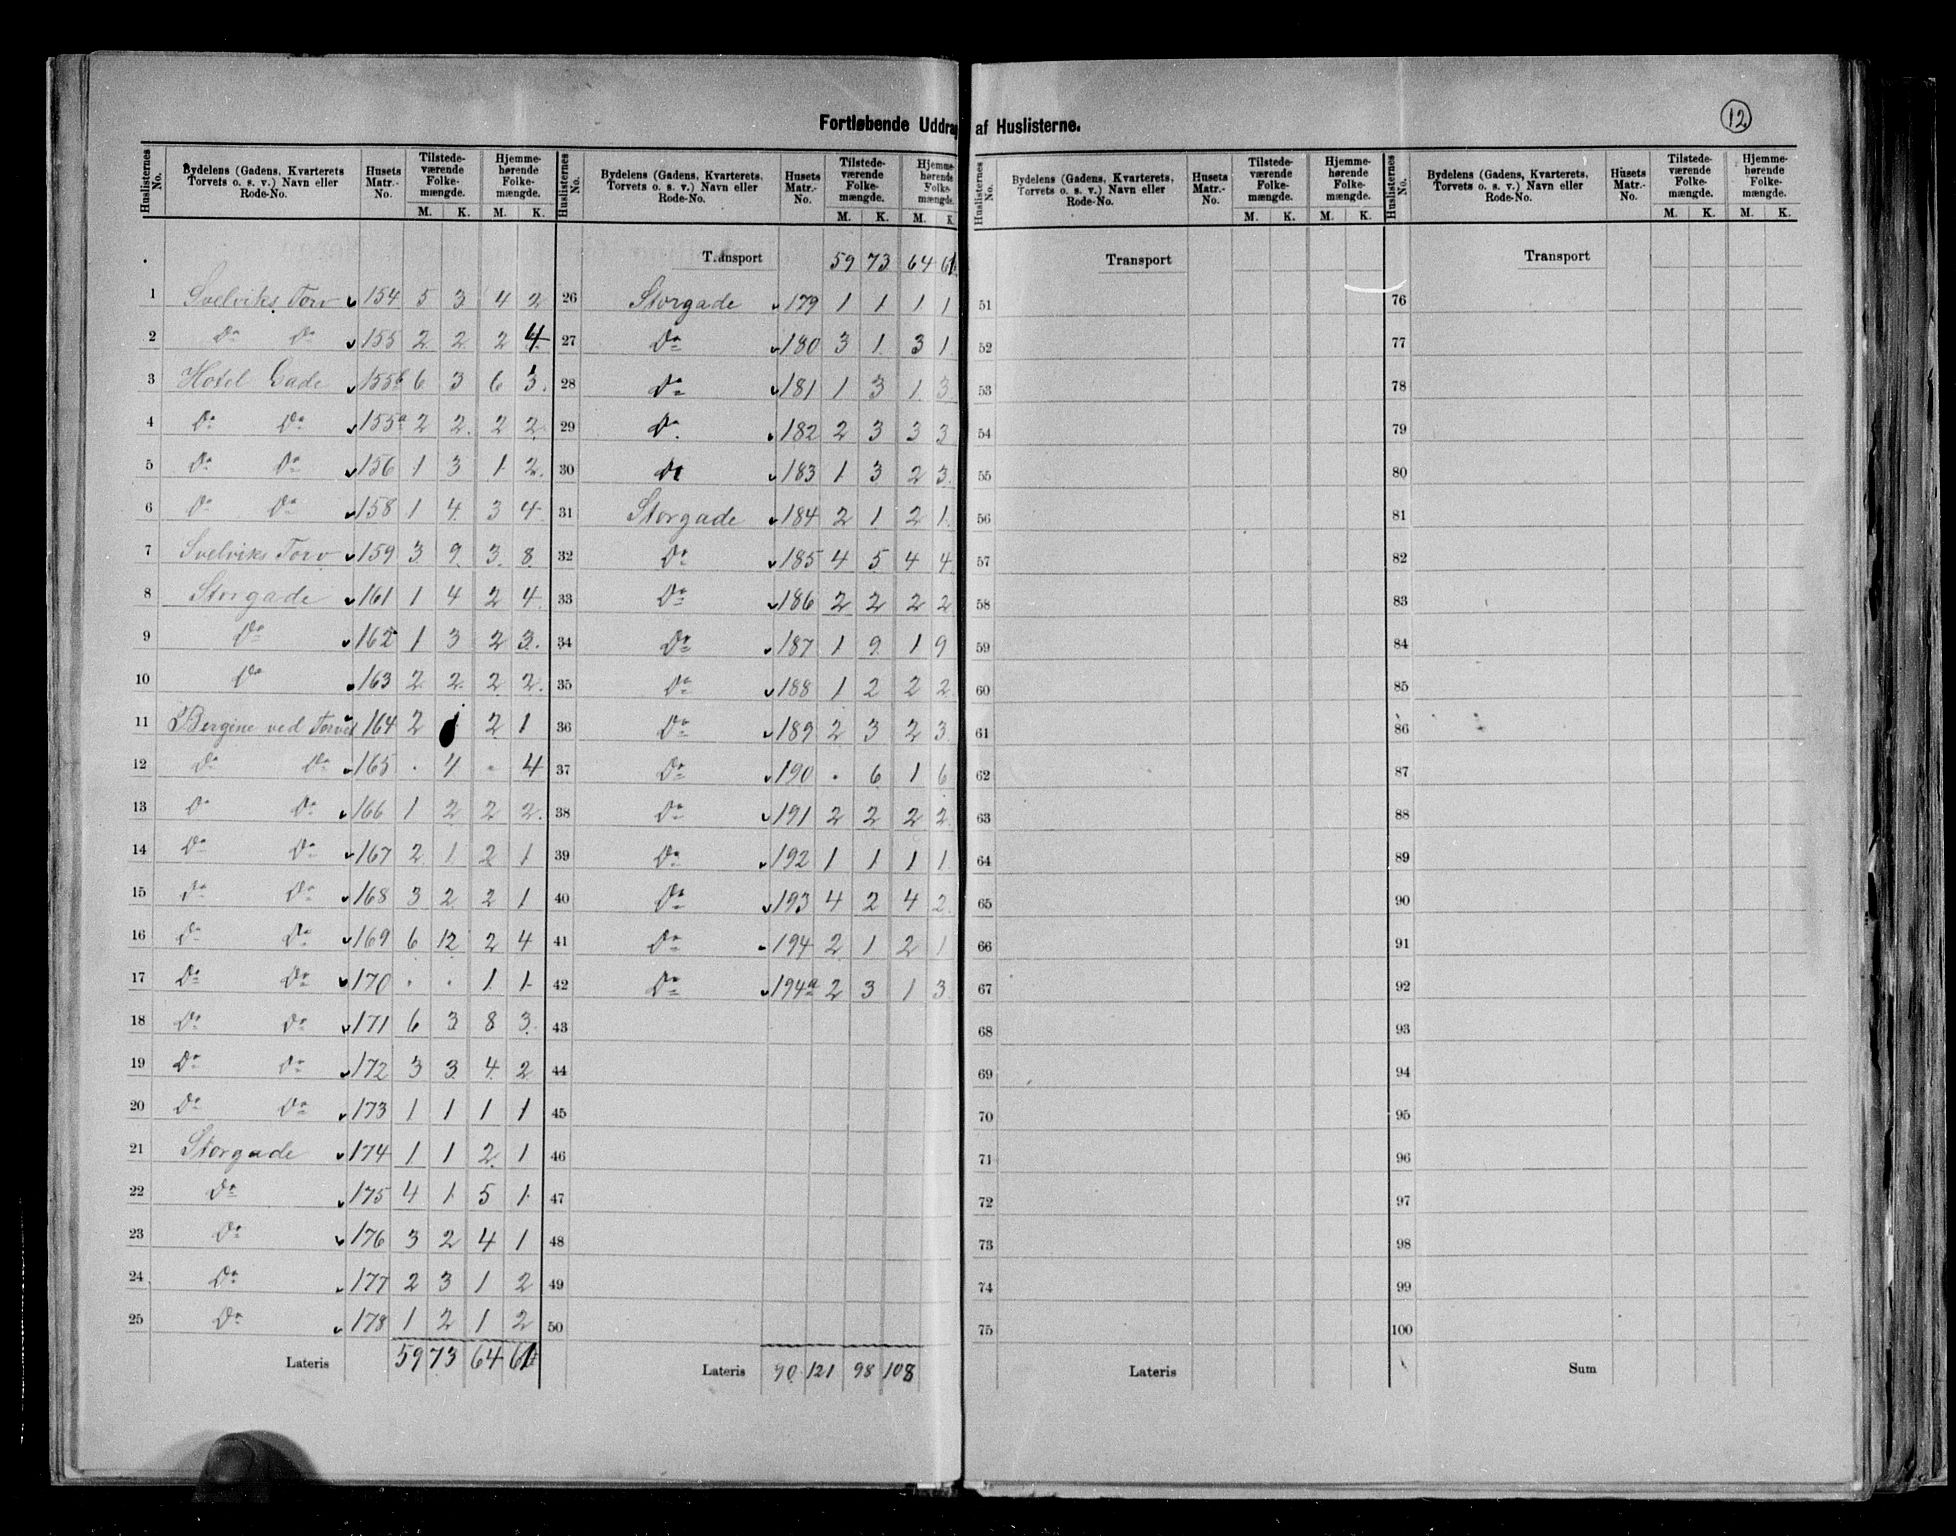 Fortløbende Uddrag af Huslisterne.
12
Huslisternes No. | Bydelens (Gadens, Kvarterets Torvets o. s. v.) Navn eller Rode-No. | Husets Matr.-No. | Tilstedeværende Folkemængde. M. K. | Hjemmehørende Folkemængde. M. K.
1 Svelviks Torv 154 5 3 4 2
2 Do Do 155 2 2 2 4
3 Hotel Gade 155b 6 3 6 3
4 Do Do 155a 2 2 2 2
5 Do Do 156 1 3 1 2
6 Do Do 158 1 4 3 4
7 Svelviks Torv 159 3 9 3 8
8 Storgade 161 1 4 2 4
9 Do 162 1 3 2 3
10 Do 163 2 2 2 2
11 Bergine ved Torvet 164 2 1 2 1
12 Do Do 165 . 4 . 4
13 Do Do 166 1 2 2 2
14 Do Do 167 2 1 2 1
15 Do Do 168 3 2 2 1
16 Do Do 169 6 12 2 4
17 Do Do 170 . . 1 1
18 Do Do 171 6 3 8 3
19 Do Do 172 3 3 4 2
20 Do Do 173 1 1 1 1
21 Storgade 174 1 1 2 1
22 Do 175 4 1 5 1
23 Do 176 3 2 4 1
24 Do 177 2 3 1 2
25 Do 178 1 2 1 2
Lateris 59 73 64 61
Huslisternes No. | Bydelens (Gadens, Kvarterets, Torvets o. s. v.) Navn eller Rode-No. | Husets Matr.-No. | Tilstedeværende Folkemængde. M. K. | Hjemmehørende Folkemængde. M. K.
Transport 59 73 64 61
26 Storgade 179 1 1 1 1
27 Do 180 3 1 3 1
28 Do 181 1 3 1 3
29 Do 182 2 3 3 3
30 Do 183 1 3 2 3
31 Storgade 184 2 1 2 1
32 Do 185 4 5 4 4
33 Do 186 2 2 2 2
34 Do 187 1 9 1 9
35 Do 188 1 2 2 2
36 Do 189 2 3 2 3
37 Do 190 . 6 1 6
38 Do 191 2 2 2 2
39 Do 192 1 1 1 1
40 Do 193 4 2 4 2
41 Do 194 2 1 2 1
42 Do 194a 2 3 1 3
43
44
45
46
47
48
49
50
Lateris 90 121 98 108
Huslisternes No. | Bydelens (Gadens, Kvarterets, Torvets o. s. v.) Navn eller Rode-No. | Husets Matr.-No. | Tilstedeværende Folkemængde. M. K. | Hjemmehørende Folkemængde. M. K.
Transport
51
52
53
54
55
56
57
58
59
60
61
62
63
64
65
66
67
68
69
70
71
72
73
74
75
Lateris
Huslisternes No. | Bydelens (Gadens, Kvarterets, Torvets o. s. v.) Navn eller Rode-No. | Husets Matr.-No. | Tilstedeværende Folkemængde. M. K. | Hjemmehørende Folkemængde. M. K.
Transport
76
77
78
79
80
81
82
83
84
85
86
87
88
89
90
91
92
93
94
95
96
97
98
99
100
Sum